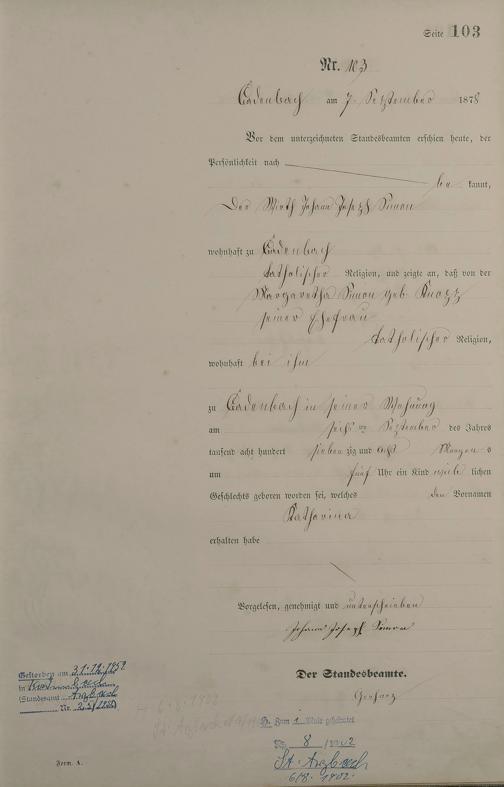 Seite 103
Nr. 103
Cadenbach am 7 September 1878
Vor dem unterzeichneten Standesbeamten erschien heute, der
Persönlichkeit nach
be kannt,
Der Wirth Johann Joseph Simon
wohnhaft zu Cadenbach
katholischer Religion, und zeigte an, daß von der
Margaretha Simon geb. Knopp
seiner Ehefrau
katholischer Religion,
wohnhaft bei ihm
zu Cadenbach in seiner Wohnung
am sechs ten September des Jahres
tausend acht hundert sieben zig und acht Morgen s
um fünf Uhr ein Kind weib lichen
Geschlechts geboren worden sei, welches den Vornamen
Katharina
erhalten habe
Vorgelesen, genehmigt und unterschrieben
Johann Joseph Simon
Der Standesbeamte.
Gestorben am 31.12.1952
in
(Standesamt Arzbach
Nr.
Zum 1. Male geheiratet
Nr. 8 /1902
St. Arzbach
6/8. 1902.
Form. A.